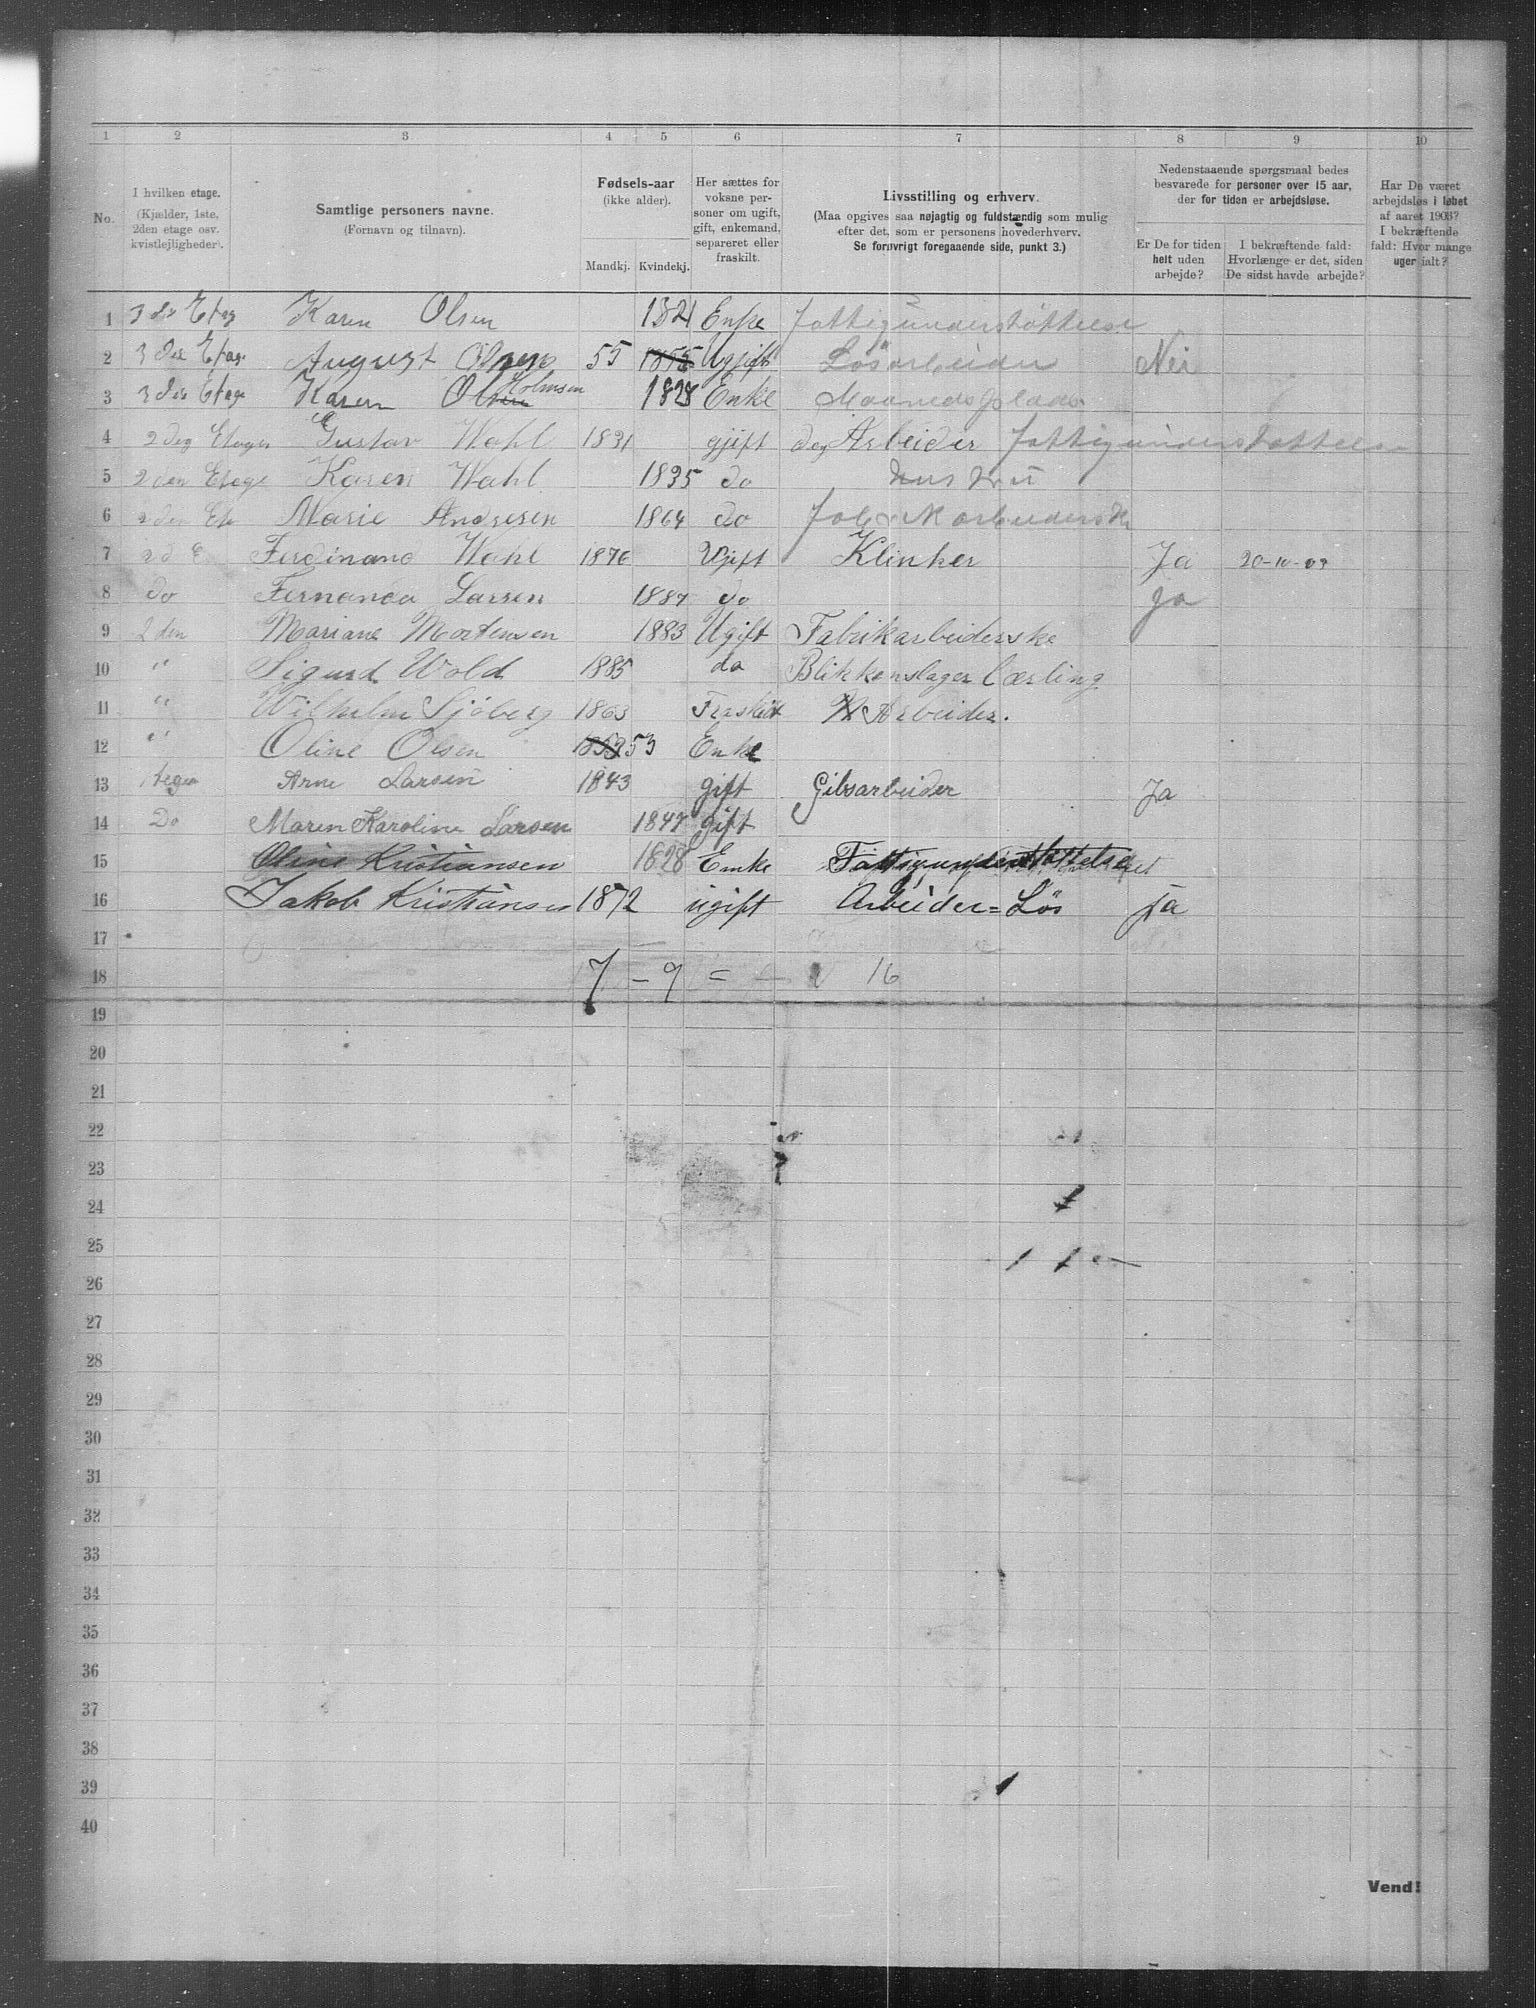 1 2 3 4 5 6 7 8 9 10
No.
I hvilken etage.
(Kjælder, 1ste,
2den etage osv.
kvistlejligheder).
Samtlige personers navne.
(Fornavn og tilnavn).
Fødsels-aar
(ikke alder).
Mandkj. Kvindekj.
Her sættes for
voksne per-
soner om ugift,
gift, enkemand,
separeret eller
fraskilt.
Livsstilling og erhverv.
(Maa opgives saa nøjagtig og fuldstændig som mulig
efter det, som er personens hovederhverv.
Se forøvrigt foregaaende side, punkt 3.)
Nedenstaaende spørgsmaal bedes
besvarede for personer over 15 aar,
der for tiden er arbejdsløse.
Er De for tiden
helt uden
arbejde?
I bekræftende fald:
Hvorlænge er det, siden
De sidst havde arbejde?
Har De været
arbejdsløs i løbet
af aaret 1903?
I bekræftende
fald: Hvor mange
uger ialt?
1 3 die Etag Karen Olsen 1821 Enke fattigunderstöttelse
2 3 die Etage August Olsen 55 1855 Ugift Lösarbeider Nei
3 3 die Etage Karen Olsen Holmsen 1828 Enke Maanedsplads
4 2 deg Etager Gustav Wahl 1831 gjift deg Arbeider fattigunderstøttelse
5 2 den Etage Karen Wahl 1835 do hustru
6 2 den Et Marie Andresen 1864 do
7 2 d E Ferdinand Wahl 1876 Ugift Klinker Ja 20-10-03
8 do Fernanda Larsen 1887 do Ja
9 2 den Mariane Mortensen 1883 Ugift Fabrikarbeiderske
10 " Sigurd Wold 1885 do Blikkenslager Lærling
11 " Wilhelm Sjöberg 1863 Fraskilt Arbeider.
12 " Oline Olsen 1853 53 Enke
13 1 tegen Arne Larsen 1843 gift Gibsarbeider Ja
14 Do Maren Karoline Larsen 1847 gift
15 Oline Kristiansen 1828 Emke Fattigunderstøttelse
16 Jakob Kristiansen 1872 ugift Arbeider=Lös ja
17
18 7 - 9 = 16
19
20
21
22
23
24
25
26
27
28
29
30
31
32
33
34
35
36
37
38
39
40
Vend!